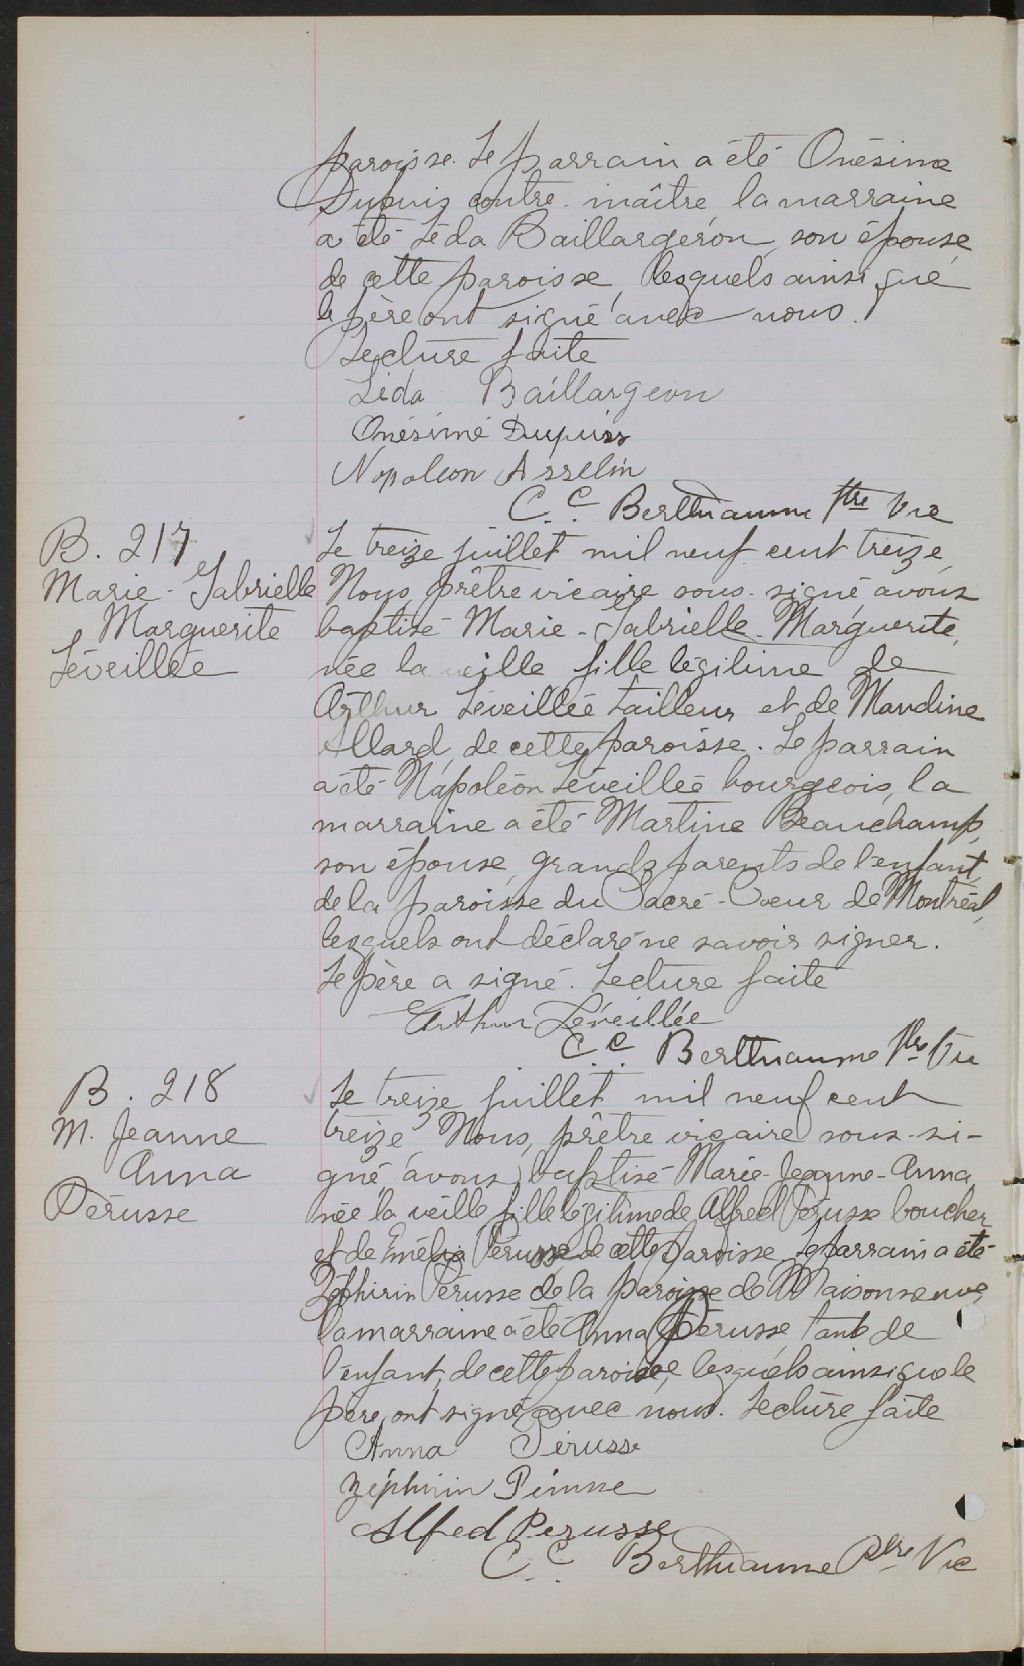 paroisse. Le parrain a été Onésime
Dupuis contre-maître la marraine
a été Léda Baillargeron, son épouse,
de cette paroisse, lesquels ainsi que
le père ont signé avec nous.
Lecture faite
Léda Baillargeon
Onésime Dupuis
Napoleon Asselin
C. C. Berthiaume Ptre Vic
B. 217
Marie-Gabrielle
Marguerite
Léveillée
Le treize juillet mil neuf cent treize,
Nous, prêtre vicaire sous-signé avons
baptisé Marie-Gabrielle-Marguerite,
née la veille fille légitime de
Arthur Léveillée tailleur et de Maudine
Allard, de cette paroisse. Le parrain
a été Napoléon Léveillée bourgeois, la
marraine a été Martine Beauchamp,
son épouse, grands parents de l'enfant,
de la paroisse du Sacré-Coeur de Montréal,
lesquels ont déclaré ne savoir signer.
Le père a signé. Lecture faite
Arthur Léveillée
C. C. Berthiaume Ptre Vic
B. 218
M. Jeanne
Anna
Pérusse
Le treize juillet mil neuf cent
treize Nous, prêtre vicaire sous-si-
gné avons baptisé Marie-Jeanne-Anna
née la veille fille légitime de Alfred Pérusse boucher
et de Emélia Pérusse de cette paroisse. Le parrain a été
Zéphirin Pérusse de la paroisse de Maisonneuve,
la marraine a été Anna Pérusse tante de
l'enfant, de cette paroisse, lesquels ainsi que le
père, ont signé avec nous. Lecture faite
Anna Pérusse
Zéphirin Pérusse
Alfred Perusse
C. C. Berthiaume Ptre Vic